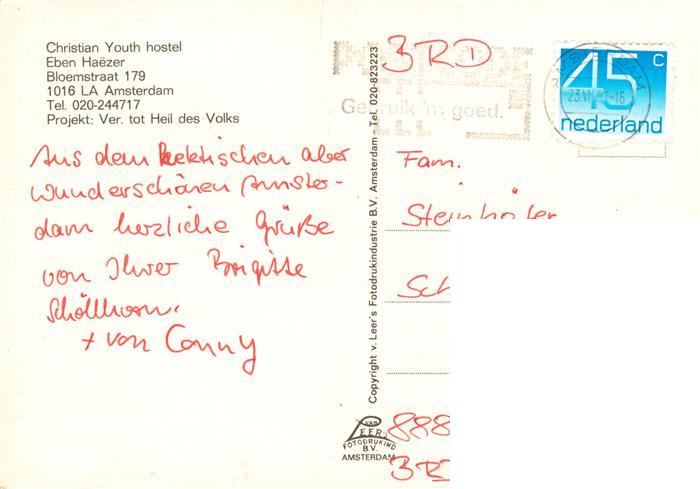 Christian Youth hostel
Eben Haëzer
Bloemstraat 179
1016 LA Amsterdam
Tel. 020-244717
Projekt: Ver. tot Heil des Volks
Aus dem hektischen aber
wunderschönen Amster-
dam herzliche Grüße
von Ihrer Brigitte
Schöllhorn.
+ von Conny
Copyright v. Leer's Fotodrukindustrie B.V. Amsterdam - Tel. 020-823223
VAN
LEER
FOTODRUKIND
B.V.
AMSTERDAM
BRD
Gebruik 'm goed.
45 c
nederland
Fam.
888
BRD